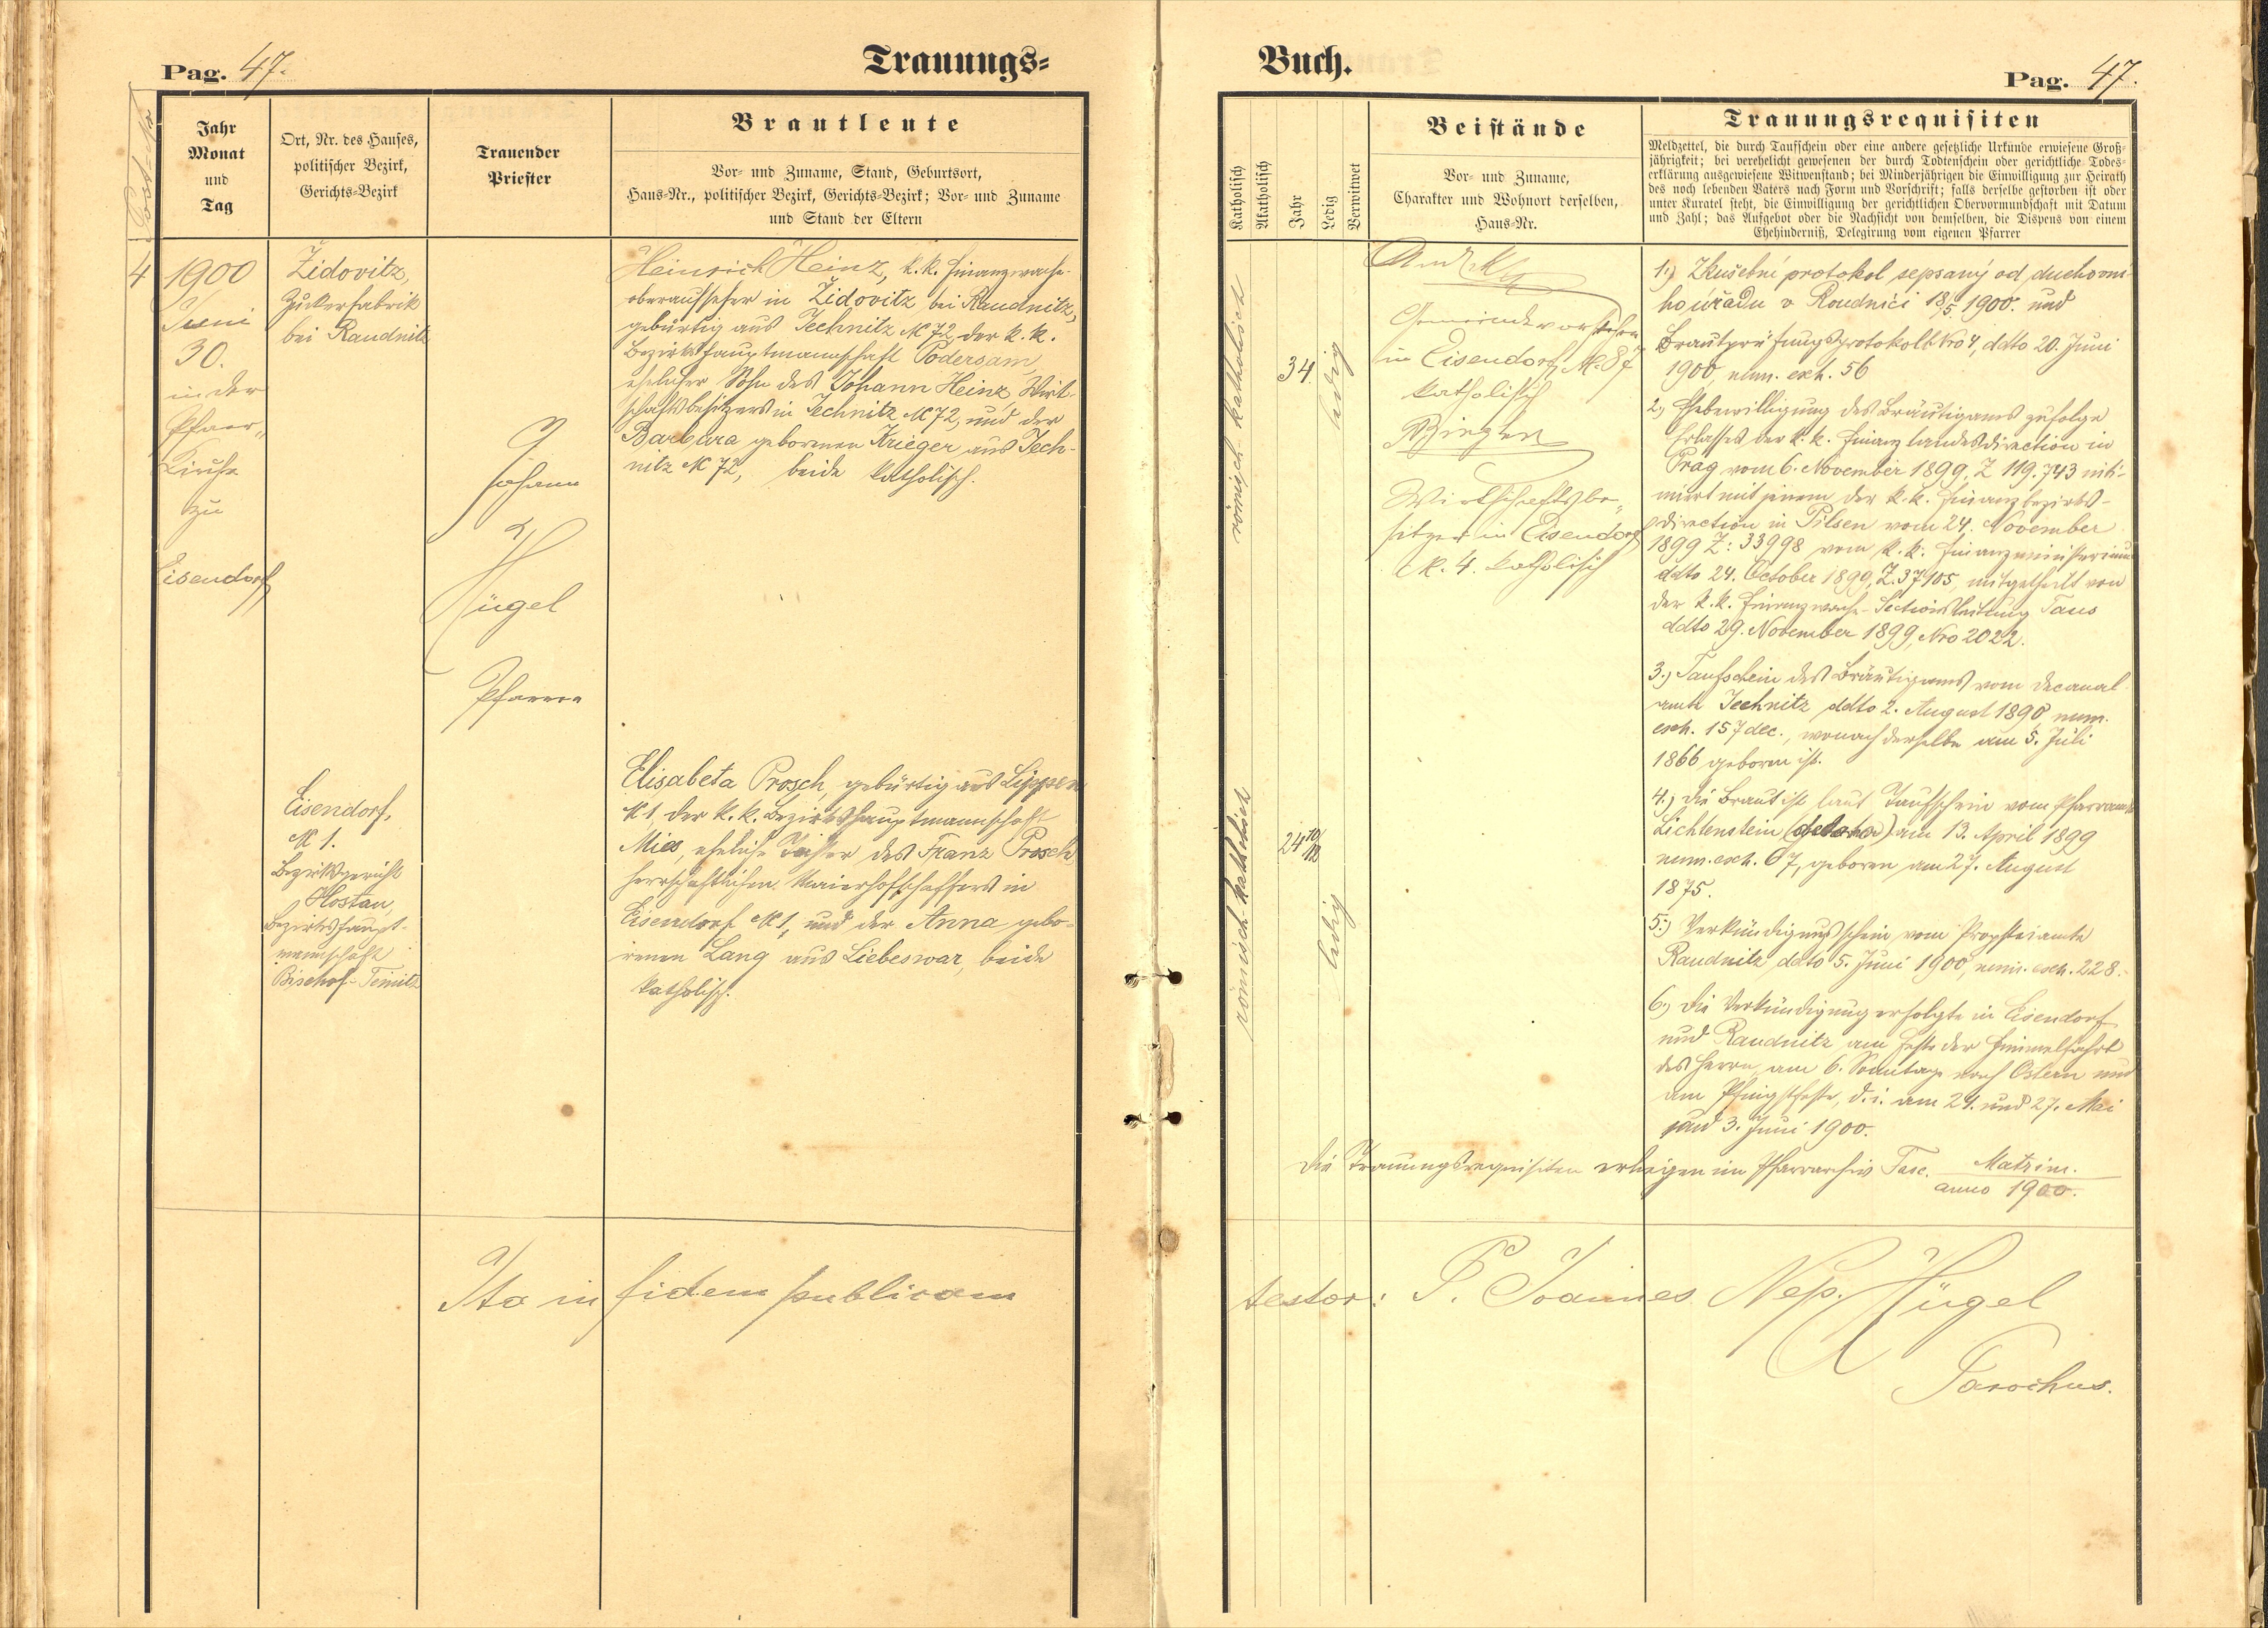 Pag. 47.
Trauungs=
Post-No
Jahr
Monat
und
Tag
Ort, Nr. des Hauses,
politischer Bezirk,
Gerichts-Bezirk
Trauender
Priester
Brautleute
Vor- und Zuname, Stand, Geburtsort,
Haus-Nr., politischer Bezirk, Gerichts-Bezirk; Vor- und Zuname
und Stand der Eltern
4
1900
Juni
30.
in der
Pfarr„
Kirche
zu
Eisendorf
Židovitz,
Zuckerfabrik
bei Raudnitz
Johann
Hügel
Pfarrer
Heinrich Heinz, k. k. Finanzwach-
oberaufseher in Židovitz bei Raudnitz,
gebürtig aus Jechnitz № 72, der k. k.
Bezirkshauptmannschaft Podersam,
ehelicher Sohn des Johann Heinz, Wirt-
schaftsbesitzers in Jechnitz № 72, und der
Barbara gebornen Krieger aus Jech-
nitz № 72, beide katholisch.
Eisendorf,
№ 1.
Bezirksgericht
Hostau,
Bezirkshaupt-
mannschaft
Bischof-Teinitz
Elisabeta Prosch, gebürtig aus Lippen
№ 1, der k. k. Bezirkshauptmannschaft
Mies, eheliche Tochter des Franz Prosch
herrschaftlichen Maierhofschaffers in
Eisendorf № 1, und der Anna gebo-
renen Lang aus Liebeswar, beide
katholisch.
Ita in fidem publicam
Buch.
Pag. 47.
Katholisch
Akatholisch
Jahr
Ledig
Verwitwet
Beistände
Vor- und Zuname,
Charakter und Wohnort derselben,
Haus-Nr.
Trauungsrequisiten
Meldzettel, die durch Taufschein oder eine andere gesetzliche Urkunde erwiesene Groß-
jährigkeit; bei verehelicht gewesenen der durch Todtenschein oder gerichtliche Todes-
erklärung ausgewiesene Witwenstand; bei Minderjährigen die Einwilligung zur Heirath
des noch lebenden Vaters nach Form und Vorschrift; falls derselbe gestorben ist oder
unter Kuratel steht, die Einwilligung der gerichtlichen Obervormundschaft mit Datum
und Zahl; das Aufgebot oder die Nachsicht von demselben, die Dispens von einem
Ehehinderniß, Delegirung vom eigenen Pfarrer
römisch-katholisch
34
ledig
Gemeindevorsteher
in Eisendorf № 87
katholisch
Wirtschaftsbe„
sitzer in Eisendorf
№. 4. katholisch
römisch-katholisch
24 10/12
ledig
1.) Zkušební protokol sepsaný od duchovní-
ho úřadu v Roudnici 18/5 1900. und
Brautprüfungsprotokoll Nro 4, ddto 20. Juni
1900, num. exh. 56
2.) Ehebewilligung des Bräutigams zufolge
Erlasses der k. k. Finanzlandesdirection in
Prag vom 6. November 1899, Z 119.743 inti-
miert mit jenem der k. k. Finanzbezirks-
direction in Pilsen vom 24. November
1899 Z: 33998 vom k. k. Finanzministerium
ddto 24. October 1899, Z. 37105, mitgetheilt von
der k. k. Finanzwach-Sectionsleitung Taus
ddto 29. November 1899, Nro 2022.
3.) Taufschein des Bräutigams vom Decanal
amte Jechnitz ddto 2. August 1890 num.
exh. 157 dec., wonach derselbe am 5. Juli
1866 geboren ist.
4.) Die Braut ist laut Taufschein vom Pfarramte
Lichtenstein am 13. April 1899
num. exh. 67, geboren am 27. August
1875.
5.) Verkündigungsschein vom Propsteiamte
Raudnitz ddto 5. Juni 1900, num. exh. 228.
6.) Die Verkündigung erfolgte in Eisendorf
und Raudnitz am Feste der Himmelfahrt
des Herrn, am 6. Sonntage nach Ostern und
am Pfingstfeste, d. i. am 24. und 27. Mai
und 3. Juni 1900.
Die Trauungsrequisiten erliegen im Pfarrarchiv Fasc. Matrim.
anno 1900.
testor: P. Joannes Nep. Hügel
Parochus.